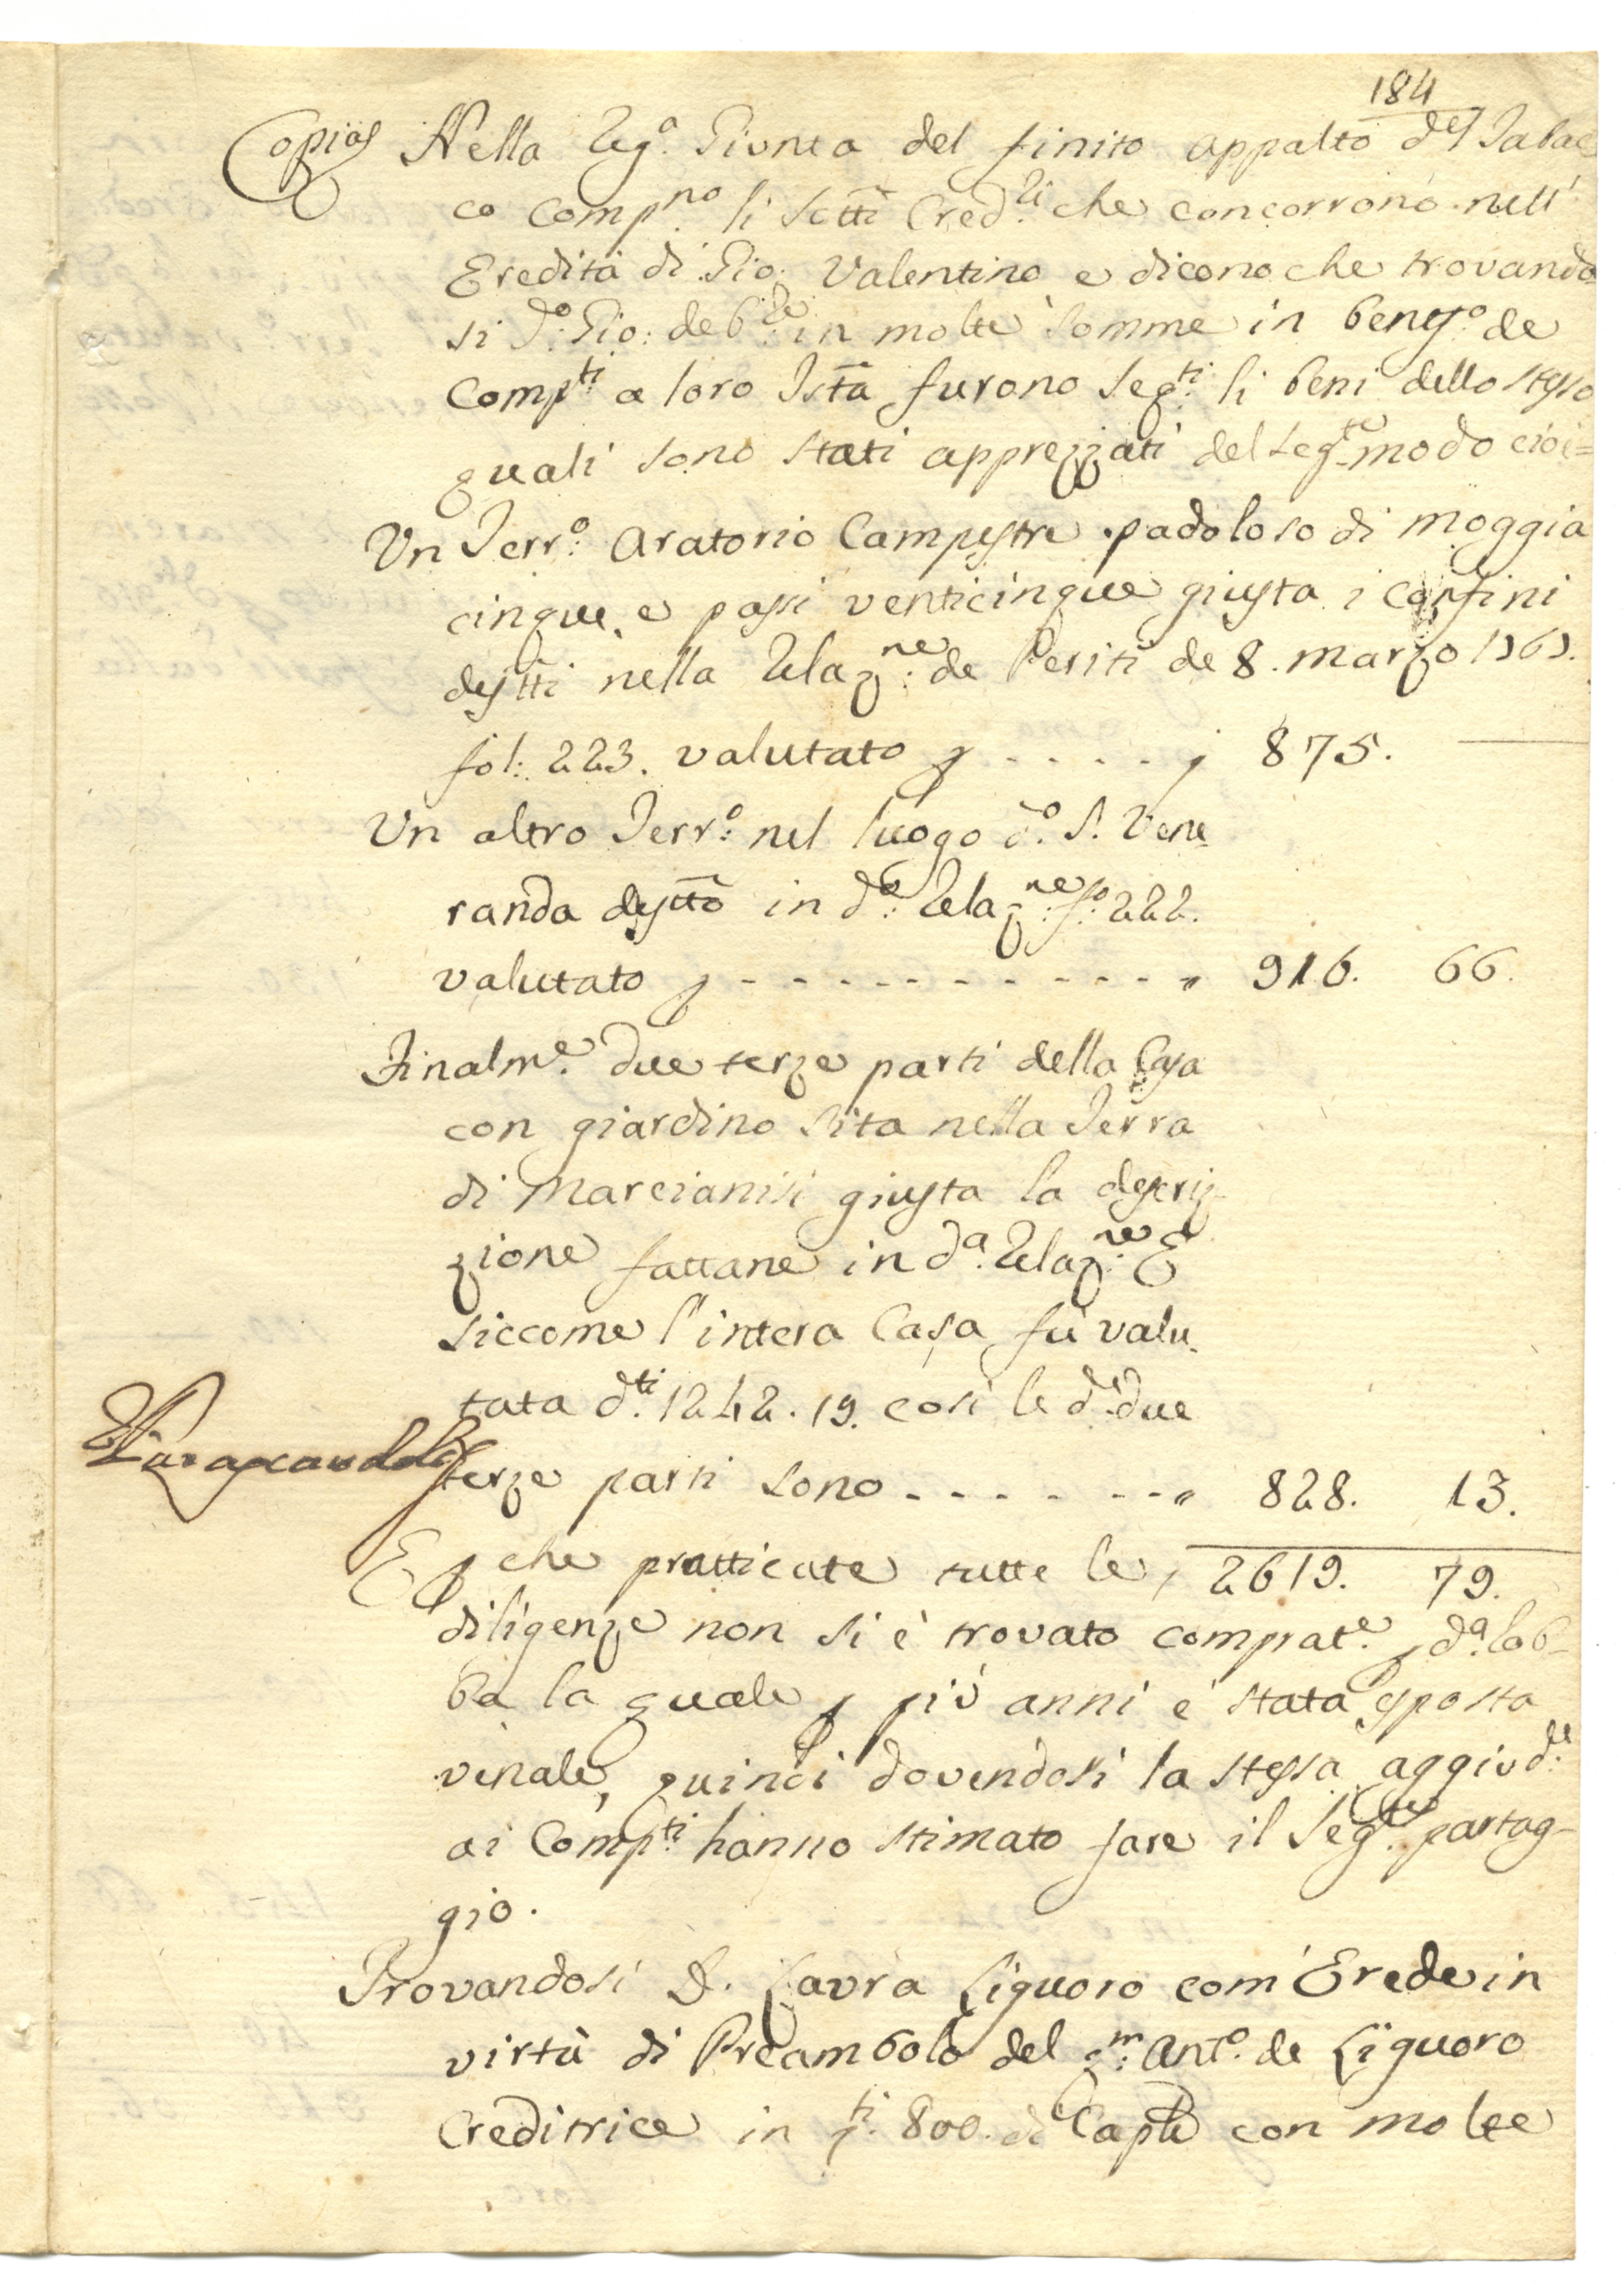 184
Copia Nella Reg.ª Giunta del finito appalto del Tabac
co Comp.no li Sotti Cred.ri che concorrono nell'
Eredità di Gio: Valentino e dicono che trovando
si d.º Gio: deb.re in molte somme in benef.º de
Comp.ti a loro Istã furono Seq.ti li beni dello stesso
quali sono stati apprezzati del seg.te modo cioè=
Un Terr.º aratorio Campestre padoloso di moggia
cinque, e passi venticinque giusta i confini
destti nella Relaz.ne de Periti de 8. marzo 1767.
fol: 223. valutato p - - - - - 875. —
Un altro Terr.º nel luogo d.º S. Vene
randa destto in d.º Relaz.ne f.º 222.
valutato p - - - - - - - - - - - " 916. 66.
Finalm.e due terze parti della Casa
con giardino sita nella Terra
di Marcianisi giusta la descriz
zione fattane in d.ª Relaz.ne E
siccome l'intera Casa fù valu
tata d.ti 1242. 19. così le d.e due
terze parti sono - - - - - - - " 828. 13.
E p che pratticate tutte le 2619. 79.
diligenze non si è trovato comprat.e p d.ª rob-
ba la quale p più anni è stata esposta
venale, quindi dovendosi la stessa aggiud.e
ai Comp.ti hanno stimato fare il Seg.te partag-
gio.
Trovandosi D. Laura Liguoro com'Erede in
virtù di Preambolo del q.m Ant.º de Liguoro
Creditrice in d.ti 800. di Cap.le con molte